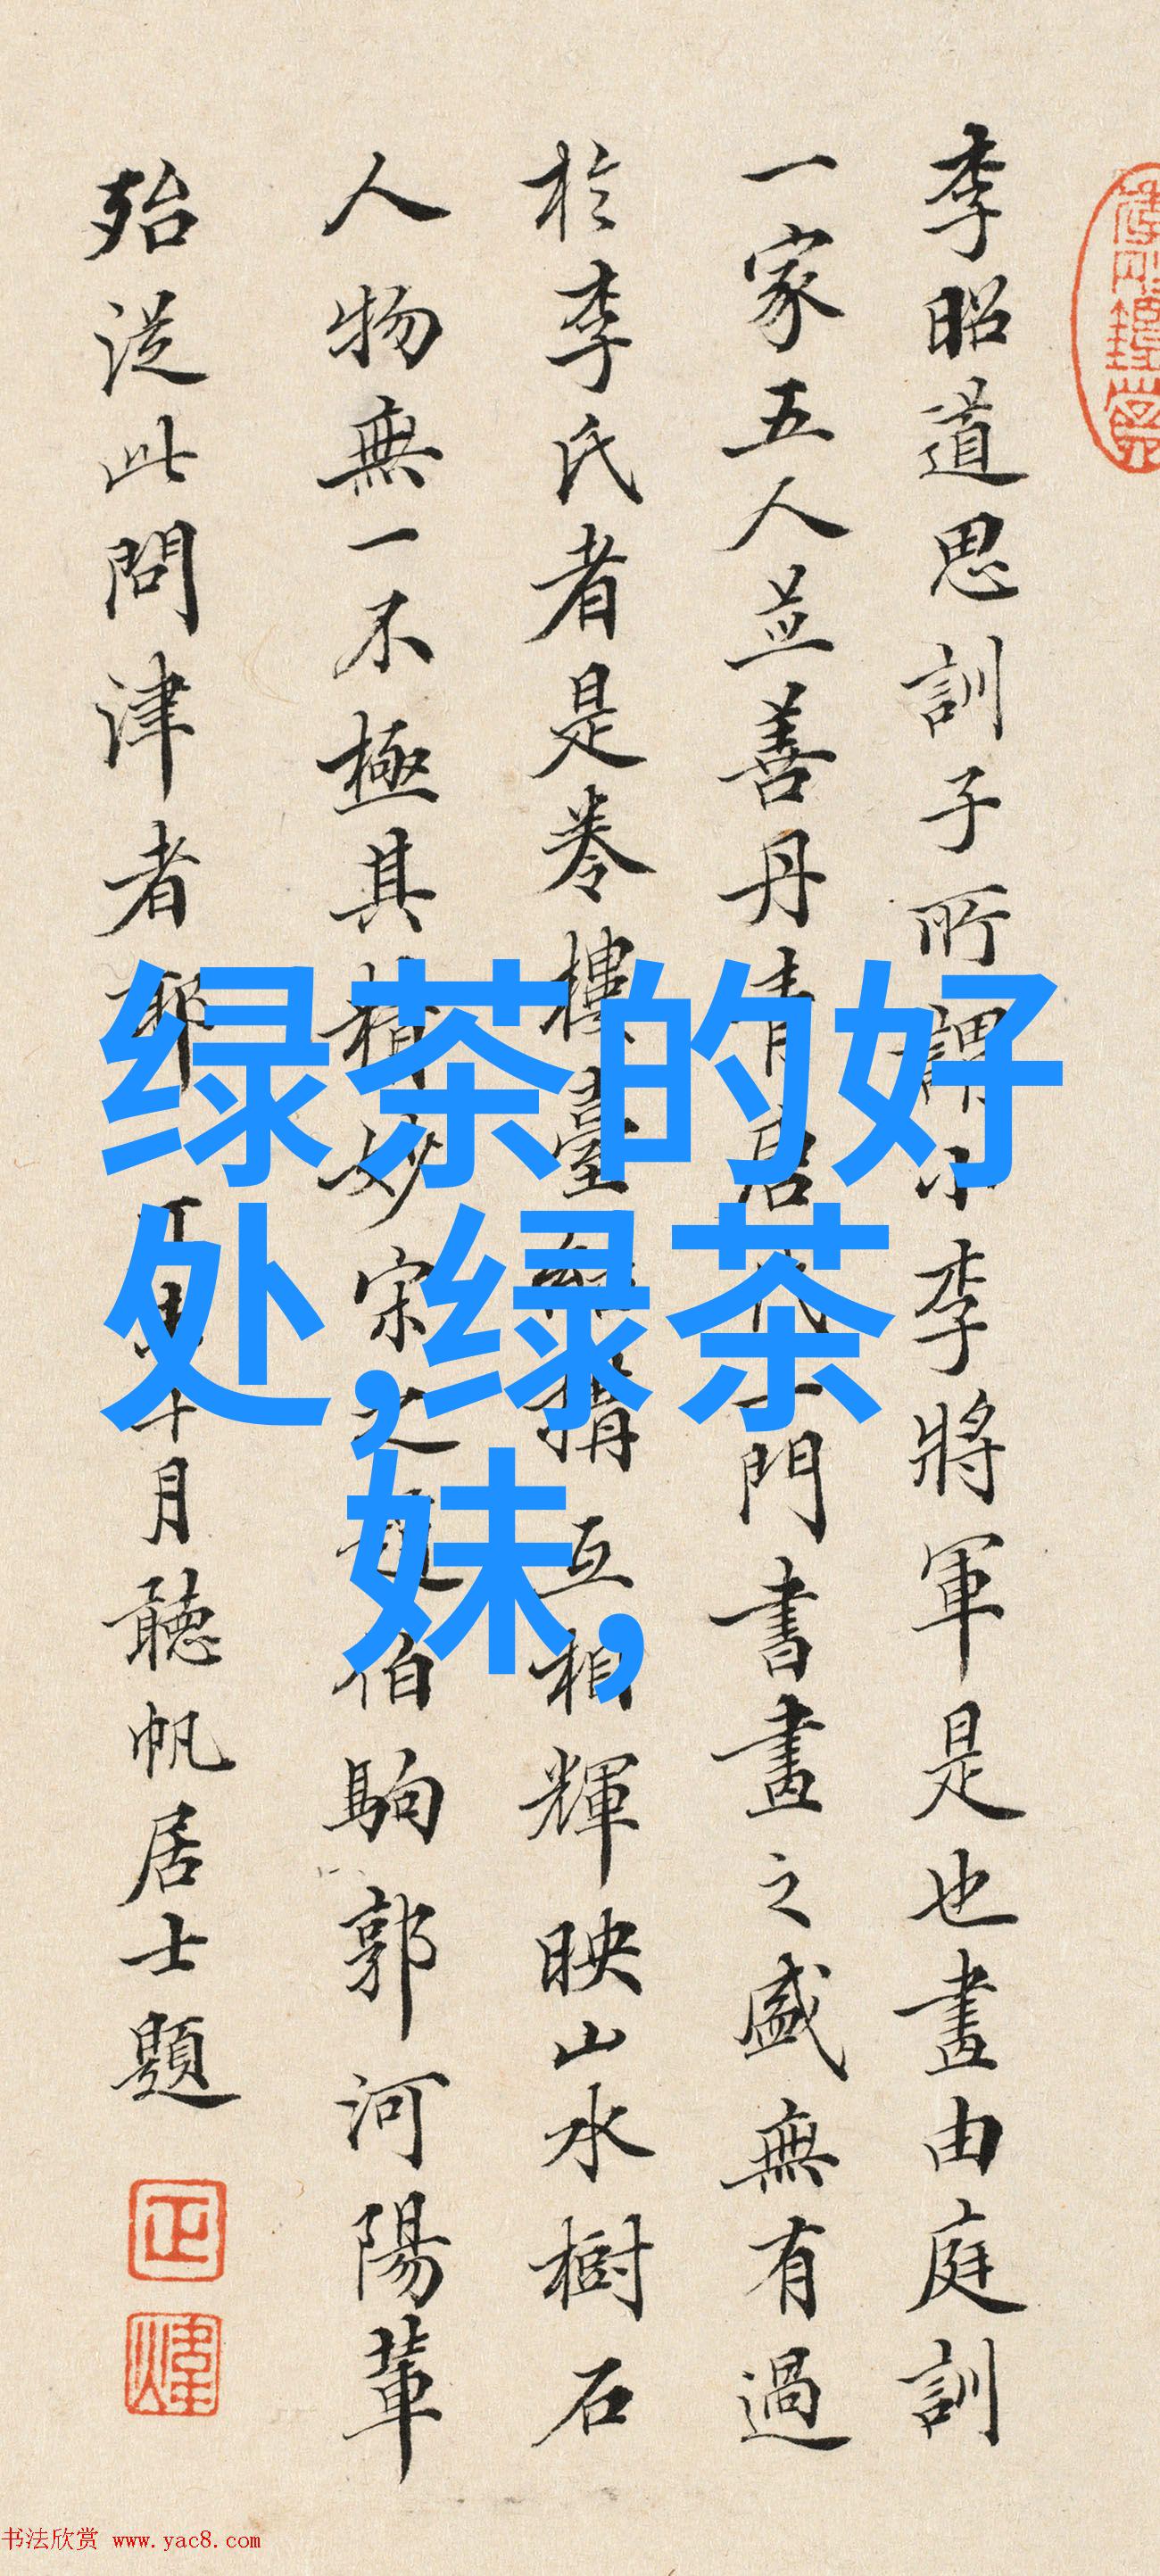 李昭道思訓子所謂小李將軍是也畫由庭訓
一家五人並善丹青唐代一門書畫之盛無有過
於李氏者是卷樓臺結構互相輝映山水樹石
人物無一不極其精妙宋之趙伯駒郭河陽輩
殆從此問津者耶
年月聽帆居士題
绿茶的好
处,绿茶
妹,
书法欣赏 www.yac8.com